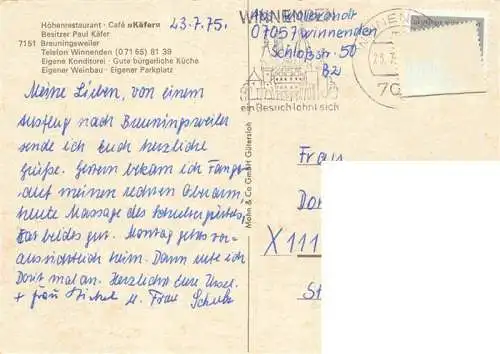 Höhenrestaurant · Café »Käfer«
Besitzer Paul Käfer
7151 Breuningsweiler
Telefon Winnenden (0 71 65) 81 39
Eigene Konditorei · Gute bürgerliche Küche
Eigener Weinbau · Eigener Parkplatz
23.7.75.
07057 Winnenden
Schloßstr. 50
B2
WINNENDEN
ein Besuch lohnt sich
70
Meine Lieben, von einem
Ausflug nach Breuningsweiler
sende ich Euch herzliche
Grüße. Gestern bekam ich Fango
auf meinen rechten Oberarm,
heute Massage des Schultergürtels,
tat beides gut. Montag geht's vor-
aussichtlich heim. Dann rufe ich
Dorit mal an. Herzlichst Eure Ursel.
+ Frau Michel u. Frau Schulz
Mohn & Co GmbH Gütersloh
Frau
Dor
X 111
St